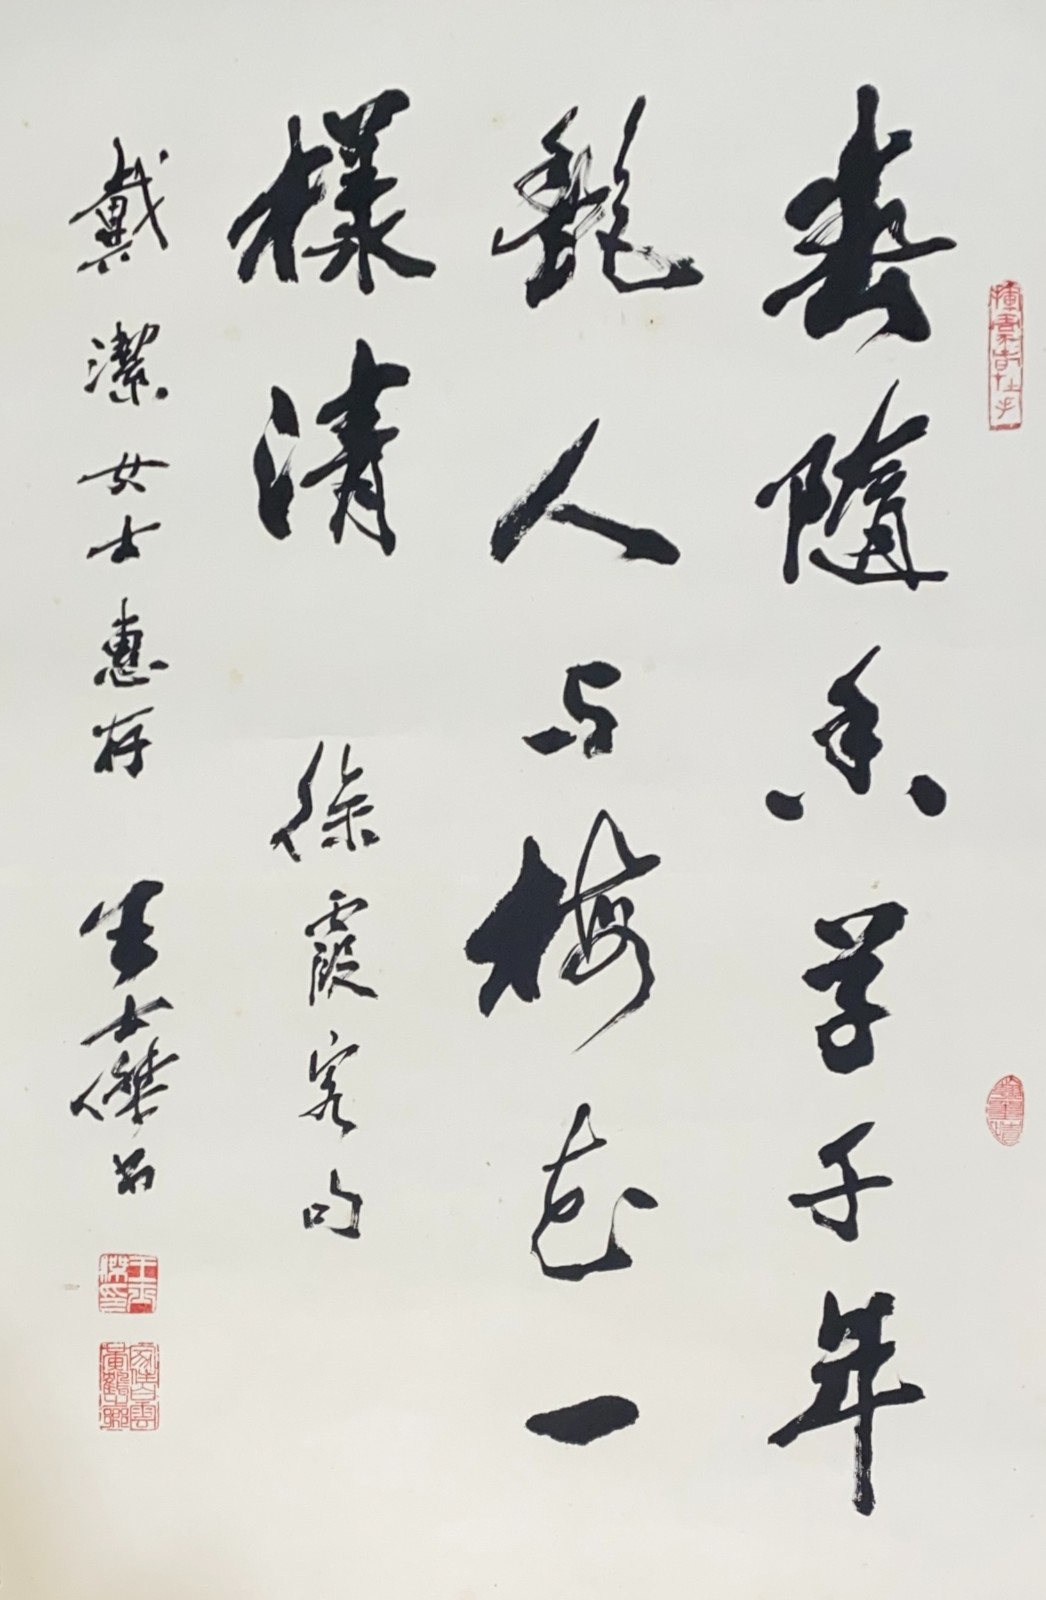 春隨香草千年
艷人与梅花一
樣清
徐霞客句
戴潔女士惠存
王士傑書